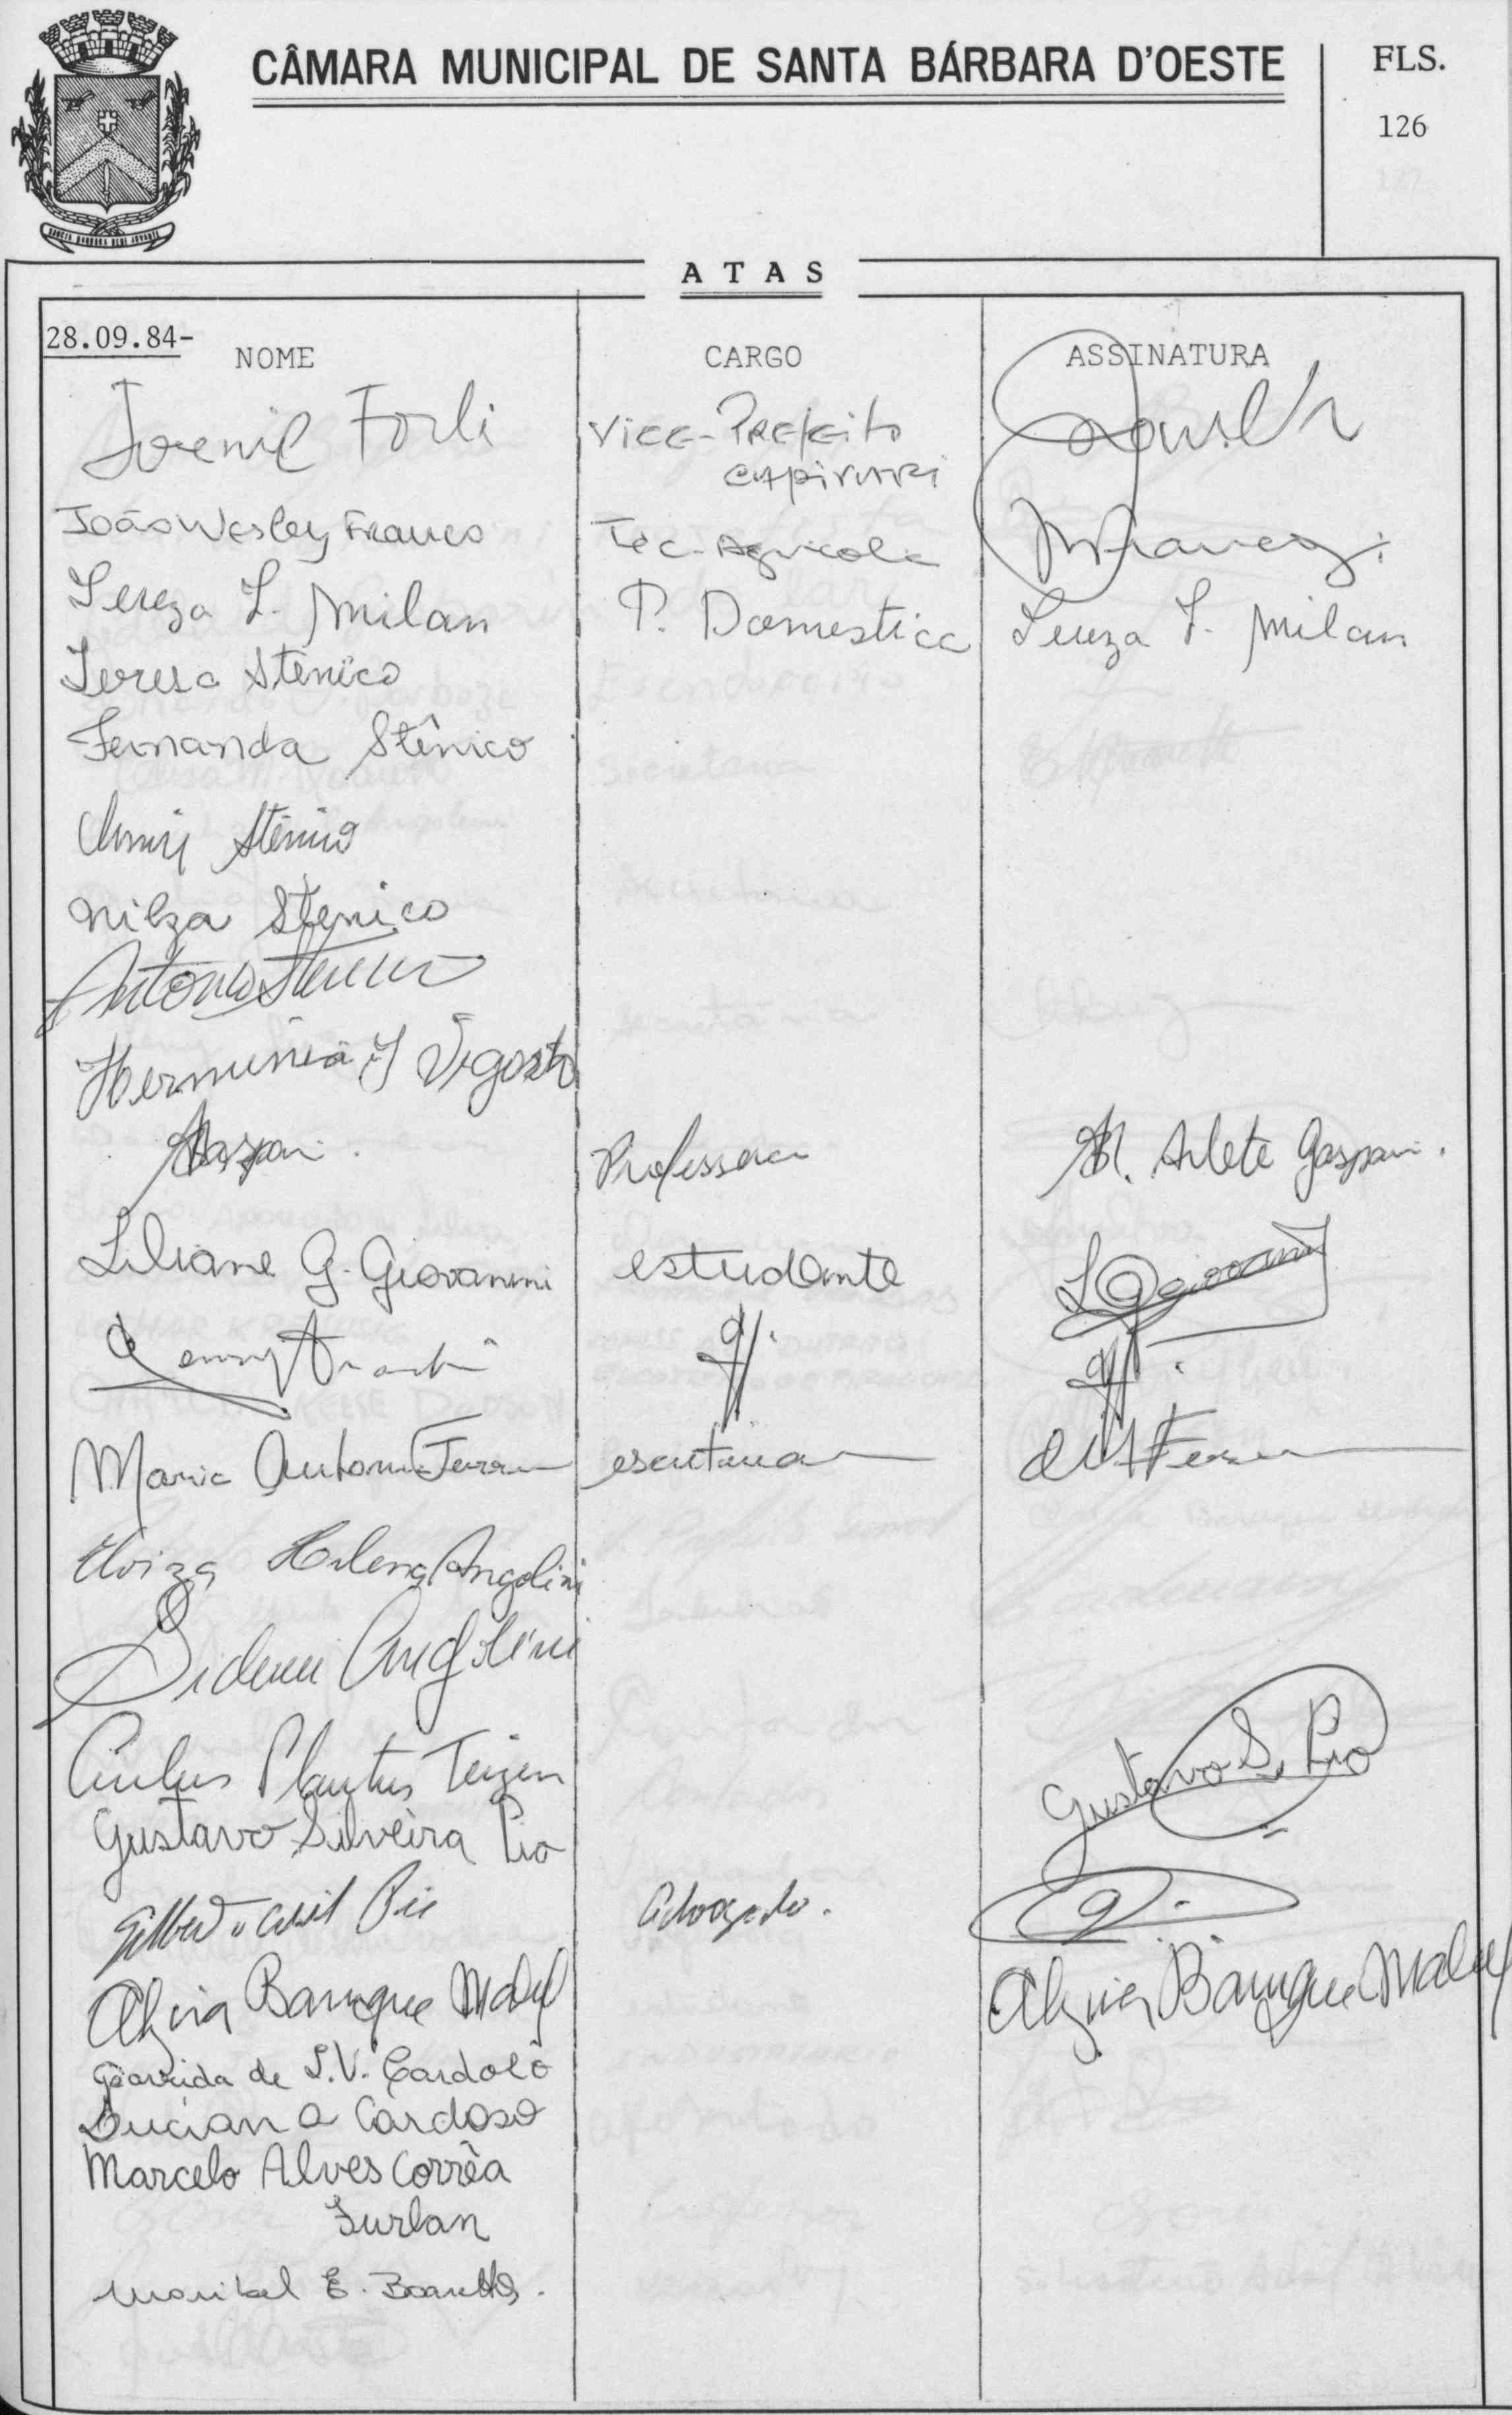 CÂMARA MUNICIPAL DE SANTA BÁRBARA D'OESTE
FLS.
126
ATAS
28.09.84-
NOME CARGO ASSINATURA
Juenil Forli Vice-Prefeito
Capivari
João Wesley Franco Tec-Agricola
Tereza F. Milan P. Domestica Tereza F. Milan
Teresa Stênico
Fernanda Stênico
Stênico
Nilza Stenico
Antonio Stenico
Herminia
Gaspari. Professora M. Arlete Gaspari.
Liliane G. Giovanini estudante LGGiovanini
Maria Antonia Ferra escriturária
Eloiza Helena Angolini
Sidenei Angolini
Carlus Plautus Teizen
Gustavo Silveira Pio Gustavo S. Pio
Pio advogado.
Alzira Baruque Maluf Alzira Baruque Maluf
de S.V. Cardoso
Luciana Cardoso
Marcelo Alves Corrêa
Furlan
Maribel E.